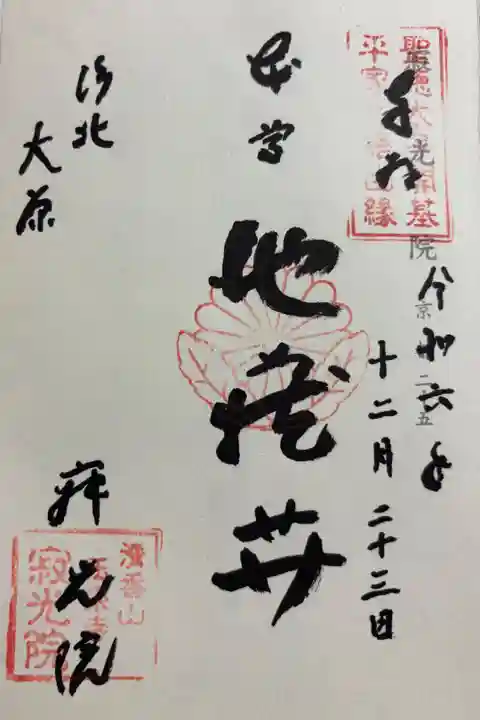 奉拝
令和六年
十二月二十三日
本尊
地蔵尊
洛北
大原
寂光院
聖徳太子開基
平家
縁
清香山
玉泉寺
寂光院